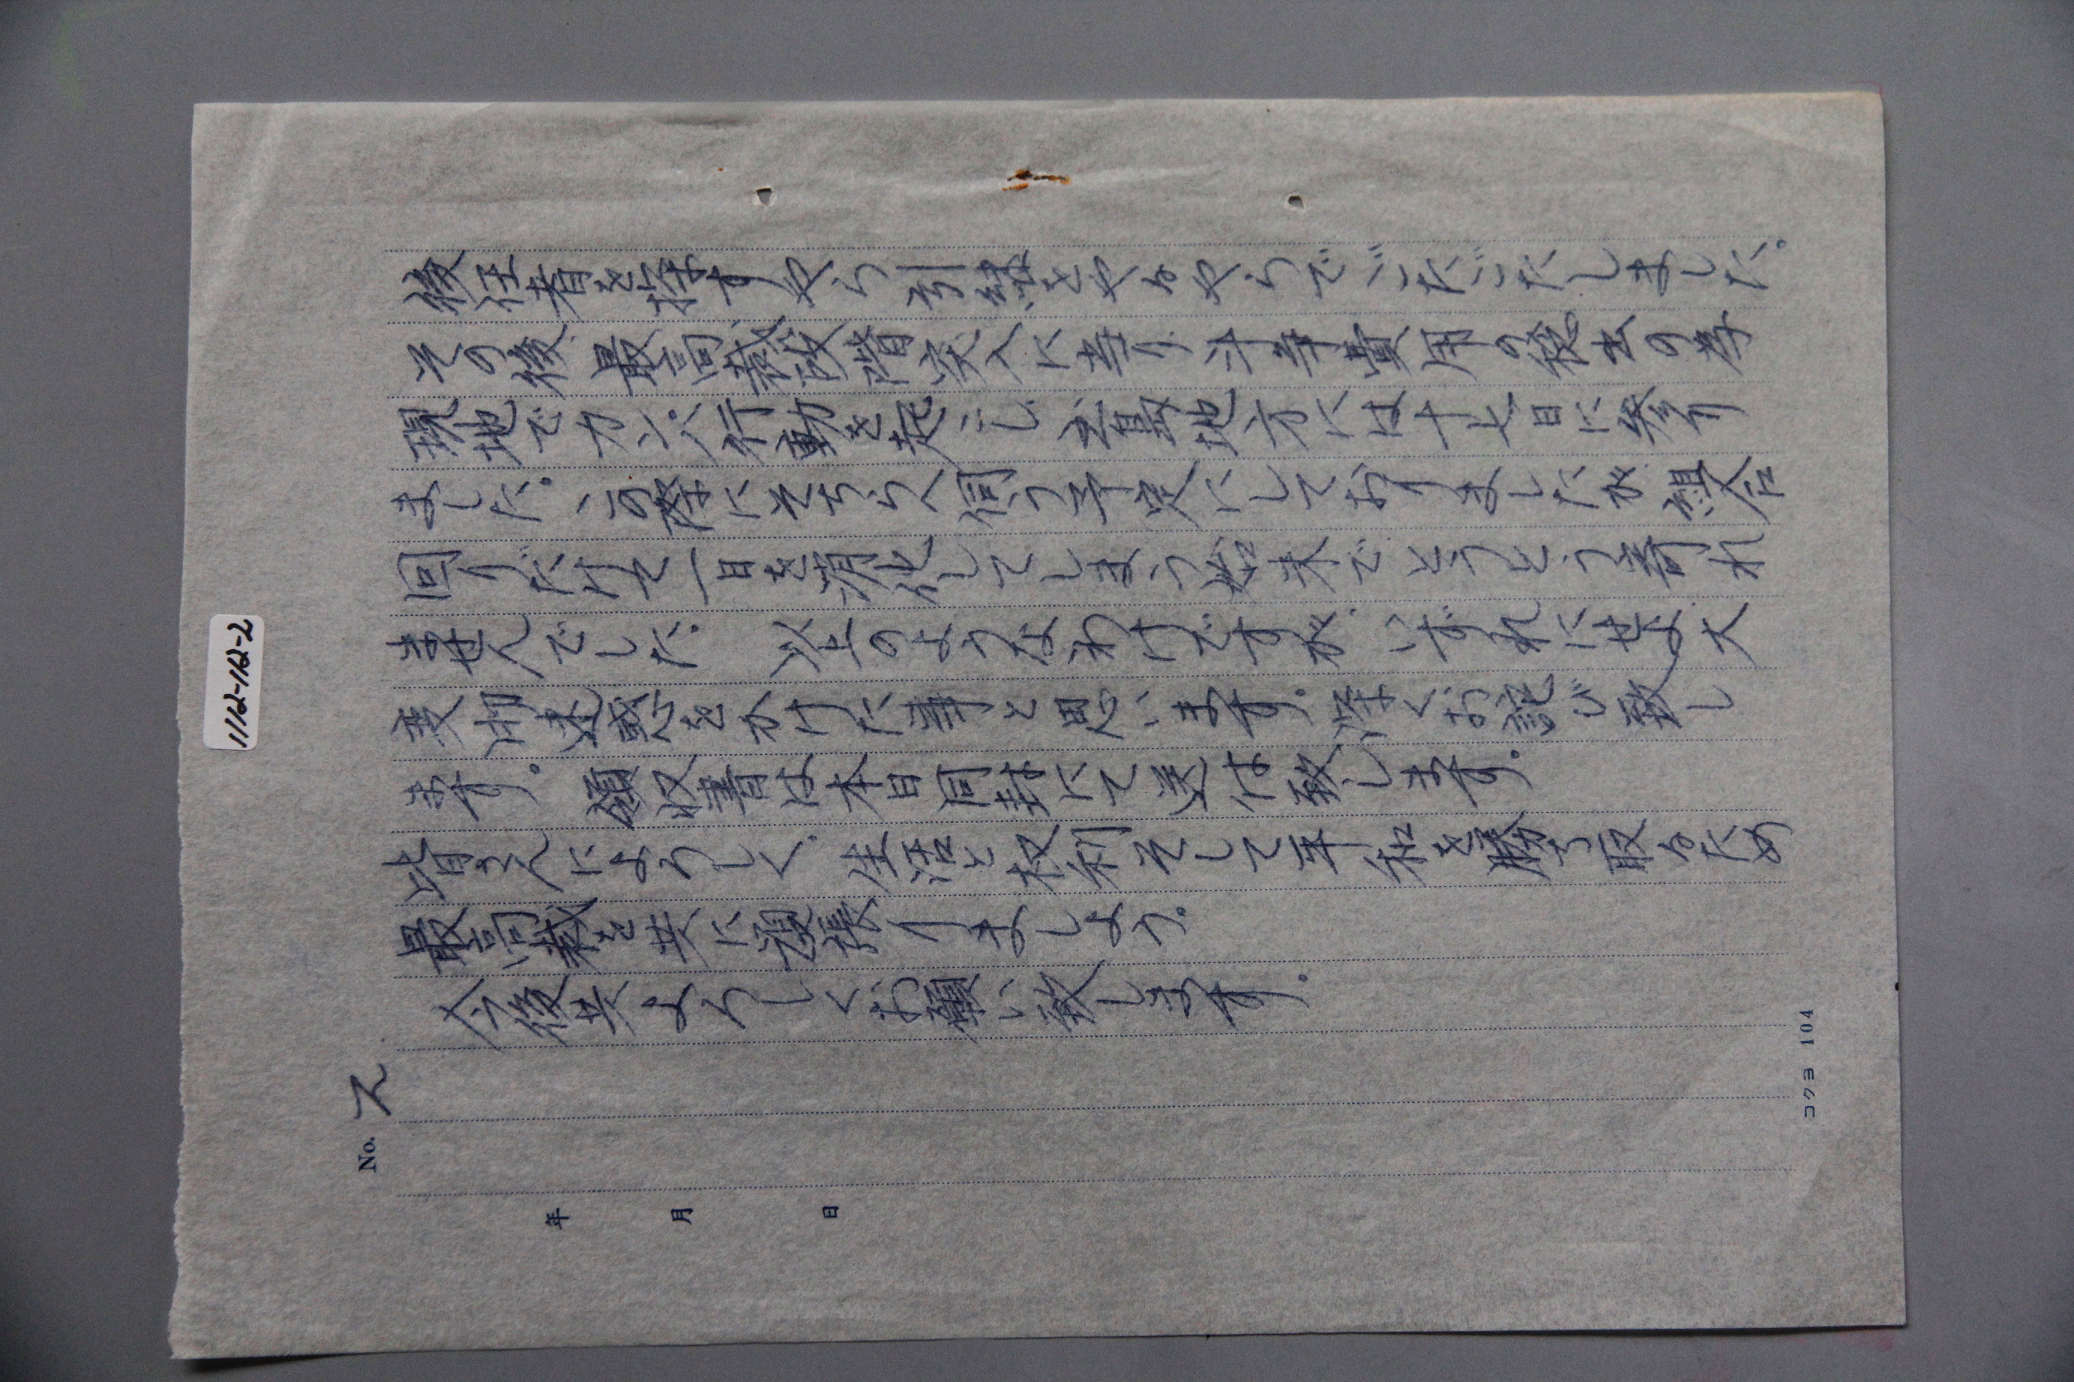 後任者を探すやら引継をやるやらでごたごたしました。
その後、最高裁段階突入に当り斗争費用の後をの為
現地でカンパ行動を起こし、広島地方には十七日に参り
ました。この際にそちらへ伺う予定にしておりましたが組合
回りだけで一日を消化してしまう始末でとうとう寄れ
ませんでした。以上のようなわけですが、いずれにせよ大
変御迷惑をかけた事と思います。深くお詫び致し
ます。領収書は本日同封にて送付致します。
皆さんによろしく。生活と権利そして平和を勝ち取るため
最高裁を共に頑張りましょう。
今後共よろしくお願い致します。
No. 2
年 月 日
コクヨ 104
1162-162-2